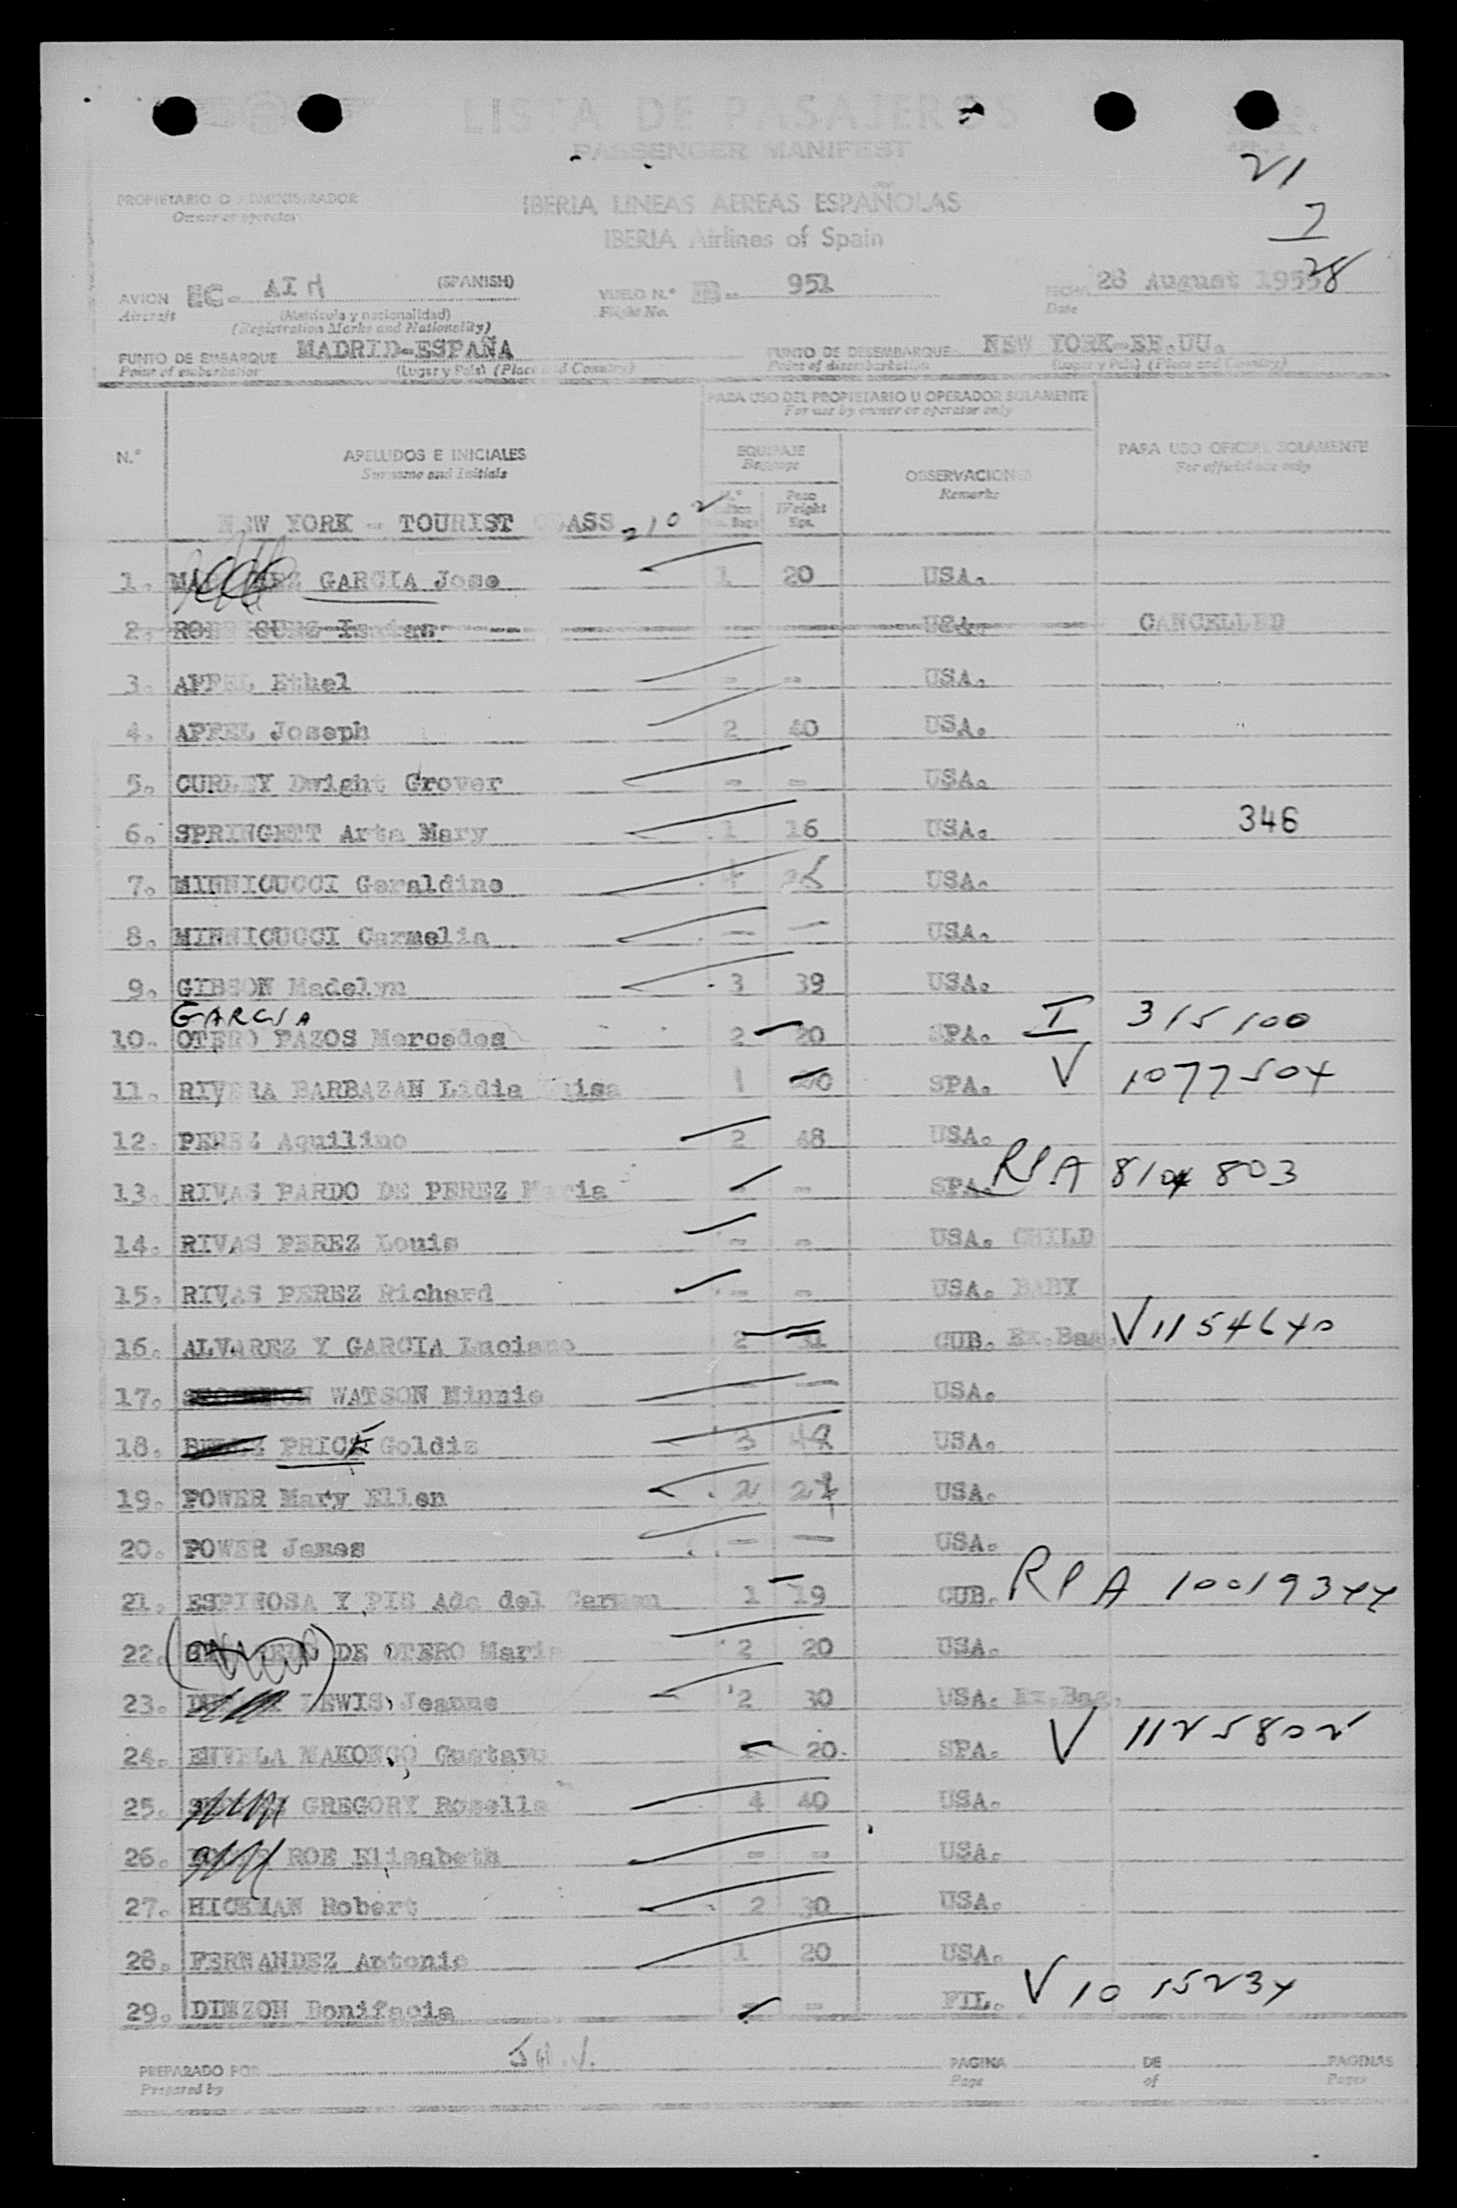 LISTA DE PASAJEROS
PASSENGER MANIFEST
21
7
28
PROPIETARIO O ADMINISTRADOR
Owner or operator
IBERIA LINEAS AEREAS ESPAÑOLAS
IBERIA Airlines of Spain
AVION EC- AIM (SPANISH)
Aircraft (Matrícula y nacionalidad)
(Registration Marks and Nationality)
VUELO N.° IB- 951
Flight No.
FECHA 28 August 1955
Date
PUNTO DE EMBARQUE MADRID-ESPAÑA
Point of embarkation (Lugar y País) (Place and Country)
PUNTO DE DESEMBARQUE NEW YORK-EE.UU.
Point of disembarkation (Lugar y País) (Place and Country)
N.°
APELLIDOS E INICIALES
Surname and Initials
PARA USO DEL PROPIETARIO U OPERADOR SOLAMENTE
For use by owner or operator only
EQUIPAJE
Baggage
Peso
Weight
Kgs.
OBSERVACIONES
Remarks
PARA USO OFICIAL SOLAMENTE
For official use only
NEW YORK - TOURIST CLASS 2102
1. GARCIA Jose 1 20 USA.
2. USA. CANCELLED
3. APFEL Ethel - - USA.
4. APFEL Joseph 2 40 USA.
5. CURLEY Dwight Grover - - USA.
6. SPRINGETT Arta Mary 1 16 USA. 346
7. MINNICUCCI Geraldine USA.
8. MINNICUCCI Carmelia - - USA.
9. GIBSON Madelyn 3 39 USA.
GARCIA
10. OTERO PAZOS Mercedes 2 20 SPA. I 315100
11. RIVERA BARBAZAN Lidia Luisa 1 20 SPA. V 1077504
12. PEREZ Aquilino 2 48 USA.
13. RIVAS PARDO DE PEREZ Maria - - SPA. RPA 8104803
14. RIVAS PEREZ Louis - - USA. CHILD
15. RIVAS PEREZ Richard - - USA. BABY
16. ALVAREZ Y GARCIA Luciano 2 31 CUB. Ex.Bag. V1154640
17. WATSON Minnie - - USA.
18. PRICE Goldie 3 USA.
19. POWER Mary Ellen 2 USA.
20. POWER James - - USA.
21. ESPINOSA Y PIS Ada del Carmen 1 19 CUB. RPA 10019344
22. DE OTERO Maria 2 20 USA.
23. LEWIS Jeanne 2 30 USA. Ex.Bag.
24. ENVELA MAKONGO Gustavo 20. SPA. V 1125802
25. GREGORY Rosella 4 40 USA.
26. ROE Elisabeth - - USA.
27. HICKMAN Robert 2 30 USA.
28. FERNANDEZ Antonio 1 20 USA.
29. DIMZON Bonifacia - - FIL. V 1015234
PREPARADO POR
Prepared by
PAGINA DE PAGINAS
Page of Pages